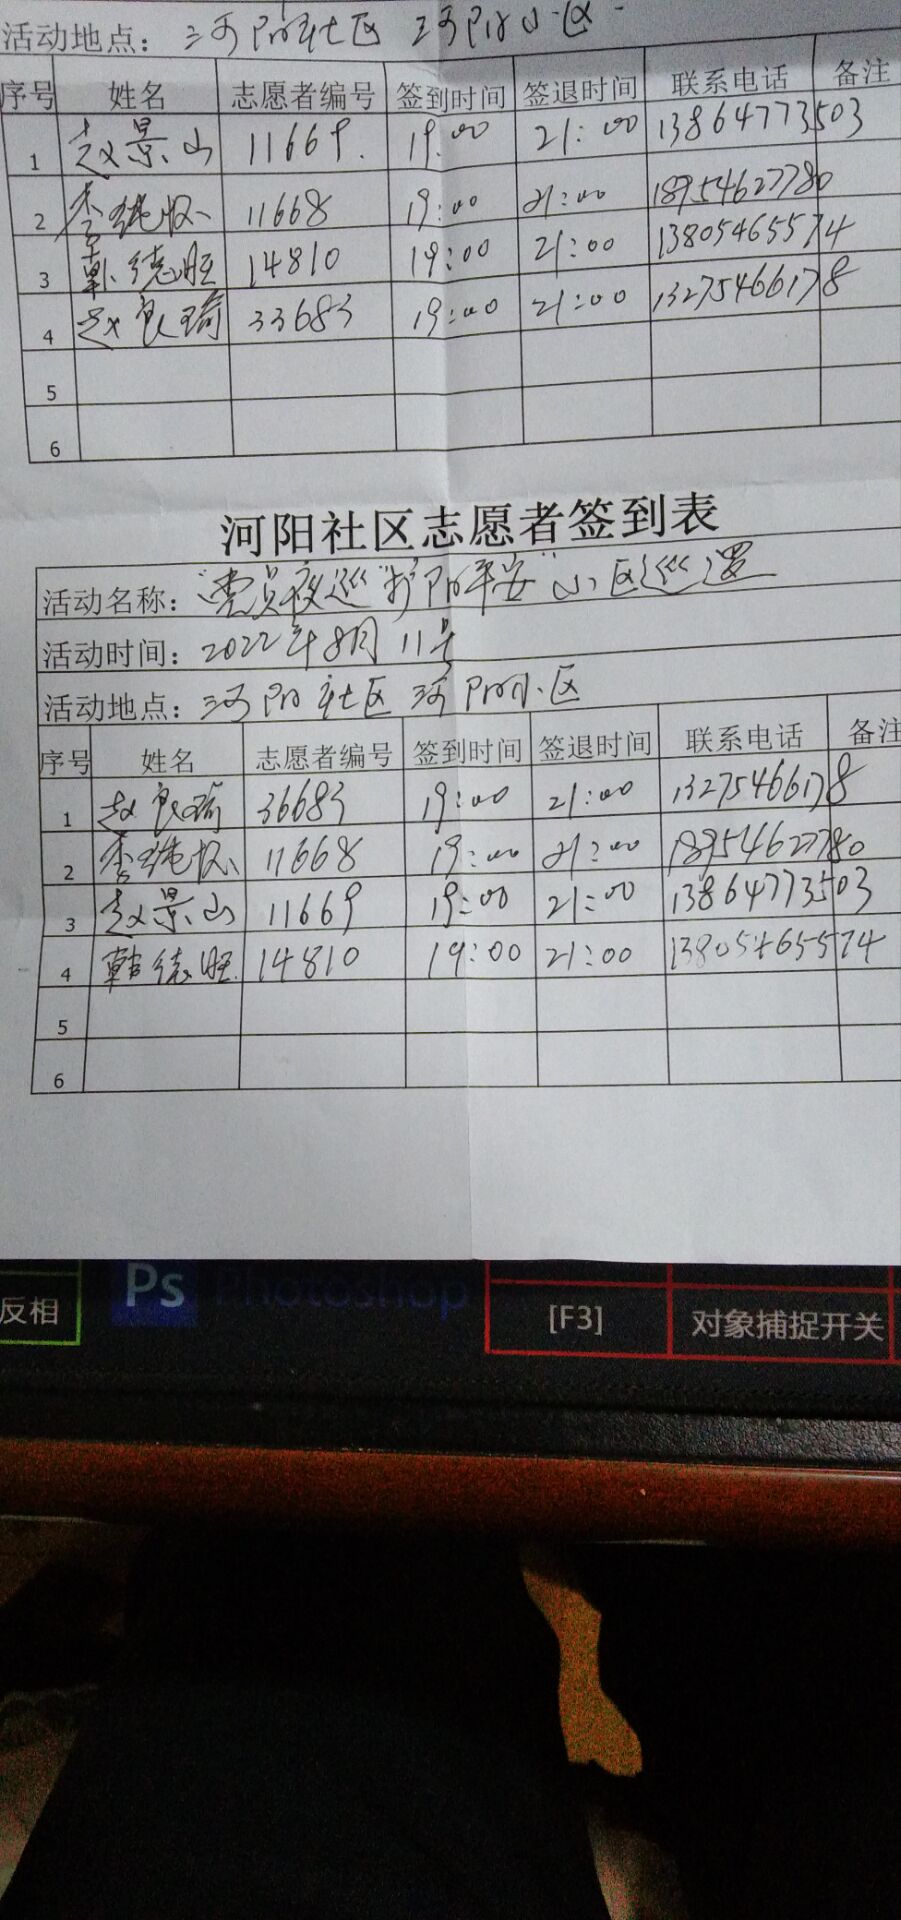 活动地点：河阳社区 河阳小区
序号 姓名 志愿者编号 签到时间 签退时间 联系电话 备注
1 赵景山 11669. 19:00 21:00 13864773503
2 李继 11668 19:00 21:00 18954627780
3 韩德旺 14810 19:00 21:00 13805465574
4 赵良琦 33683 19:00 21:00 13275466178
5
6
河阳社区志愿者签到表
活动名称：“党员夜巡”护阳平安”小区巡逻
活动时间：2022年8月11号
活动地点：河阳社区 河阳小区
序号 姓名 志愿者编号 签到时间 签退时间 联系电话 备注
1 赵良琦 36683 19:00 21:00 13275466178
2 李继 11668 19:00 21:00 18954627780
3 赵景山 11669 19:00 21:00 13864773503
4 韩德旺 14810 19:00 21:00 13805465574
5
6
Ps Photoshop
反相 [F3] 对象捕捉开关